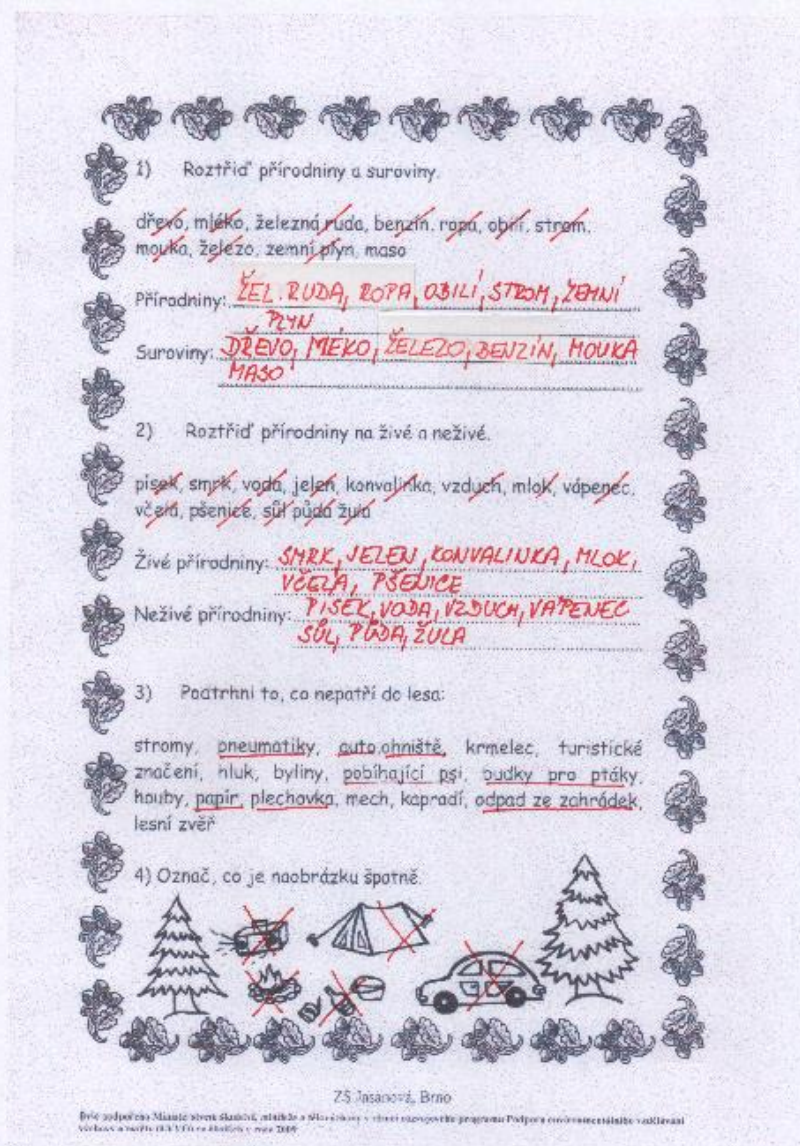 1) Roztřiď přírodniny a suroviny.
dřevo, mléko, železná ruda, benzín, ropa, obilí, strom,
mouka, železo, zemní plyn, maso
Přírodniny: ŽEL. RUDA, ROPA, OBILÍ, STROM, ZEMNÍ
PLYN
Suroviny: DŘEVO, MÉKO, ŽELEZO, BENZÍN, MOUKA
MASO
2) Roztřiď přírodniny na živé a neživé.
písek, smrk, voda, jelen, konvalinka, vzduch, mlok, vápenec,
včela, pšenice, sůl půda žula
Živé přírodniny: SMRK, JELEN, KONVALINKA, MLOK,
VČELA, PŠENICE
Neživé přírodniny: PISEK, VODA, VZDUCH, VAPENEC
SŮL, PŮDA, ŽULA
3) Podtrhni to, co nepatří do lesa:
stromy, pneumatiky, auto, ohniště, krmelec, turistické
značení, hluk, byliny, pobíhající psi, budky pro ptáky,
houby, papír, plechovka, mech, kapradí, odpad ze zahrádek,
lesní zvěř
4) Označ, co je naobrázku špatně.
ZŠ Jasanová, Brno
Bylo podpořeno školství, mládeže a tělovýchovy v rámci rozvojového programu Podpora environmentálního vzdělávání
výchovy a osvěty ve školách v roce 2009